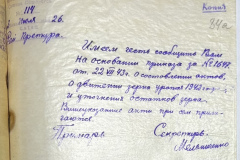 Копия
114
Июля 26.
84а
Претура.
Имеем честь сообщить Вам
на основании приказа за № 1642
от 22 VII 43г. о составлении актов,
о движении зерна урожая 1942 год
и уточнения остатков зерна.
Вышеуказанные акты при сем прила-
гаются.
Примарь Секретарь